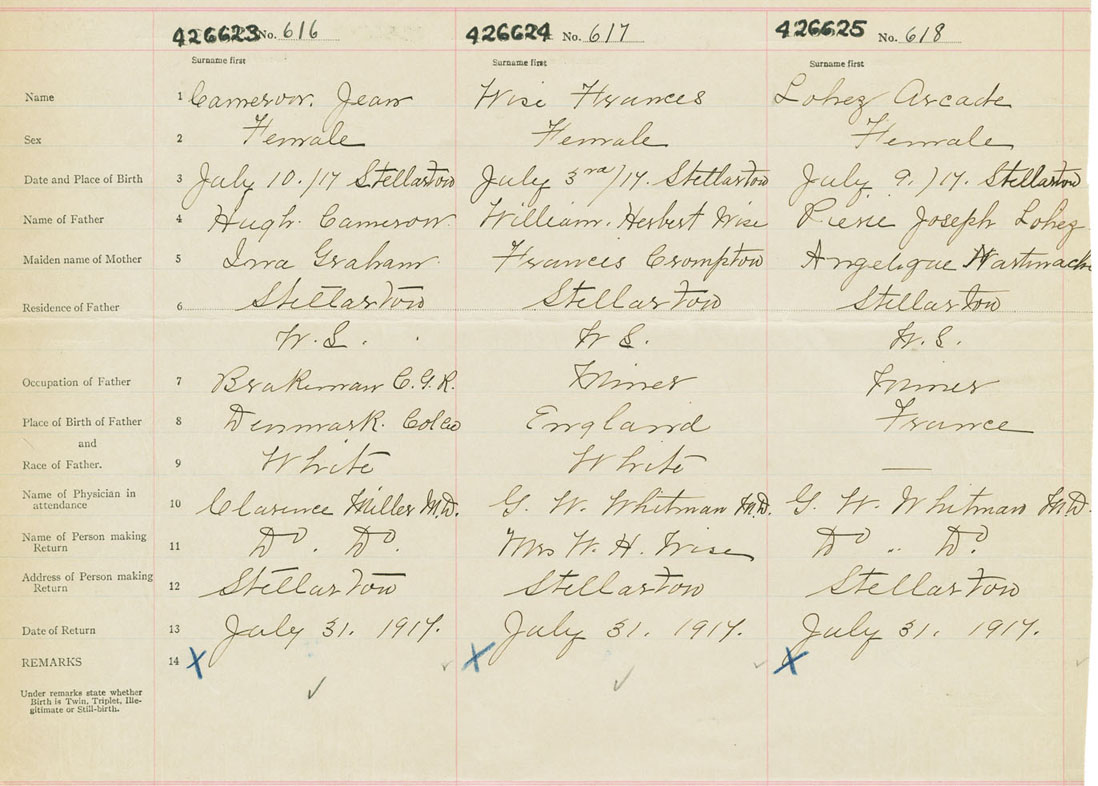 426623 No. 616 426624 No. 617 426625 No. 618
Surname first Surname first Surname first
Name 1 Cameron. Jean Wise Frances Lohez Arcade
Sex 2 Female Female Female
Date and Place of Birth 3 July 10./17 Stellarton July 3rd/17. Stellarton July 9./17. Stellarton
Name of Father 4 Hugh. Cameron. William. Herbert Wise Pierie Joseph Lohez
Maiden name of Mother 5 Ina Graham Francis Crompton Angelique
Residence of Father 6 Stellarton Stellarton Stellarton
N.S. N.S. N.S.
Occupation of Father 7 Brakeman C.G.R. Miner Miner
Place of Birth of Father 8 Denmark. Colco England France
and
Race of Father. 9 White White —
Name of Physician in
attendance 10 Clarence Miller M.D. G. W. Whitman M.D. G. W. Whitman M.D.
Name of Person making
Return 11 Do. Do. Mrs W. H. Wise Do " Do.
Address of Person making
Return 12 Stellarton Stellarton Stellarton
Date of Return 13 July 31. 1917. July 31. 1917. July 31. 1917.
REMARKS 14 X X X
Under remarks state whether
Birth is Twin, Triplet, Ille-
gitimate or Still-birth.